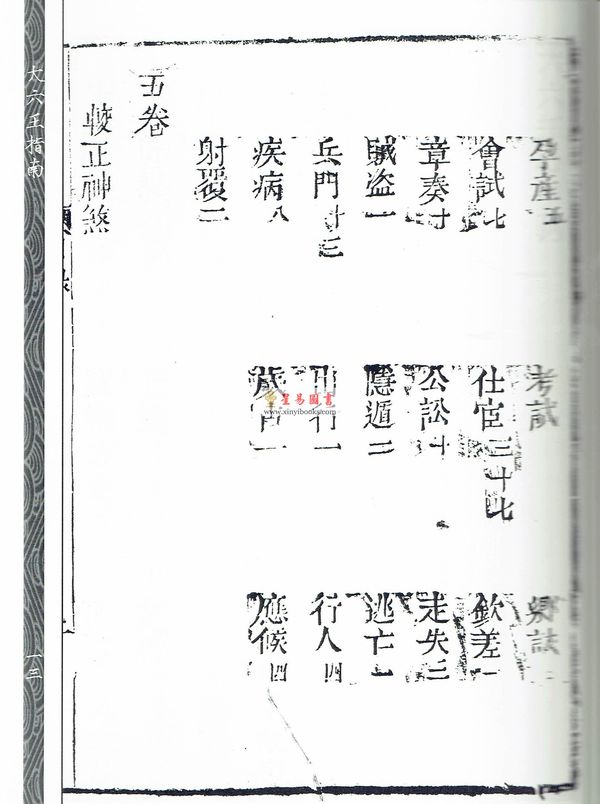 孕產五
考試
鄉試
會試七
仕宦三十七
欽差一
章奏十
公訟十
走失三
賊盜一
隱遁二
逃亡
兵門十三
出行一
行人四
疾病八
應候四
射覆二
五卷
較正神煞
星易圖書
www.xinyibooks.com
大六壬指南
一三